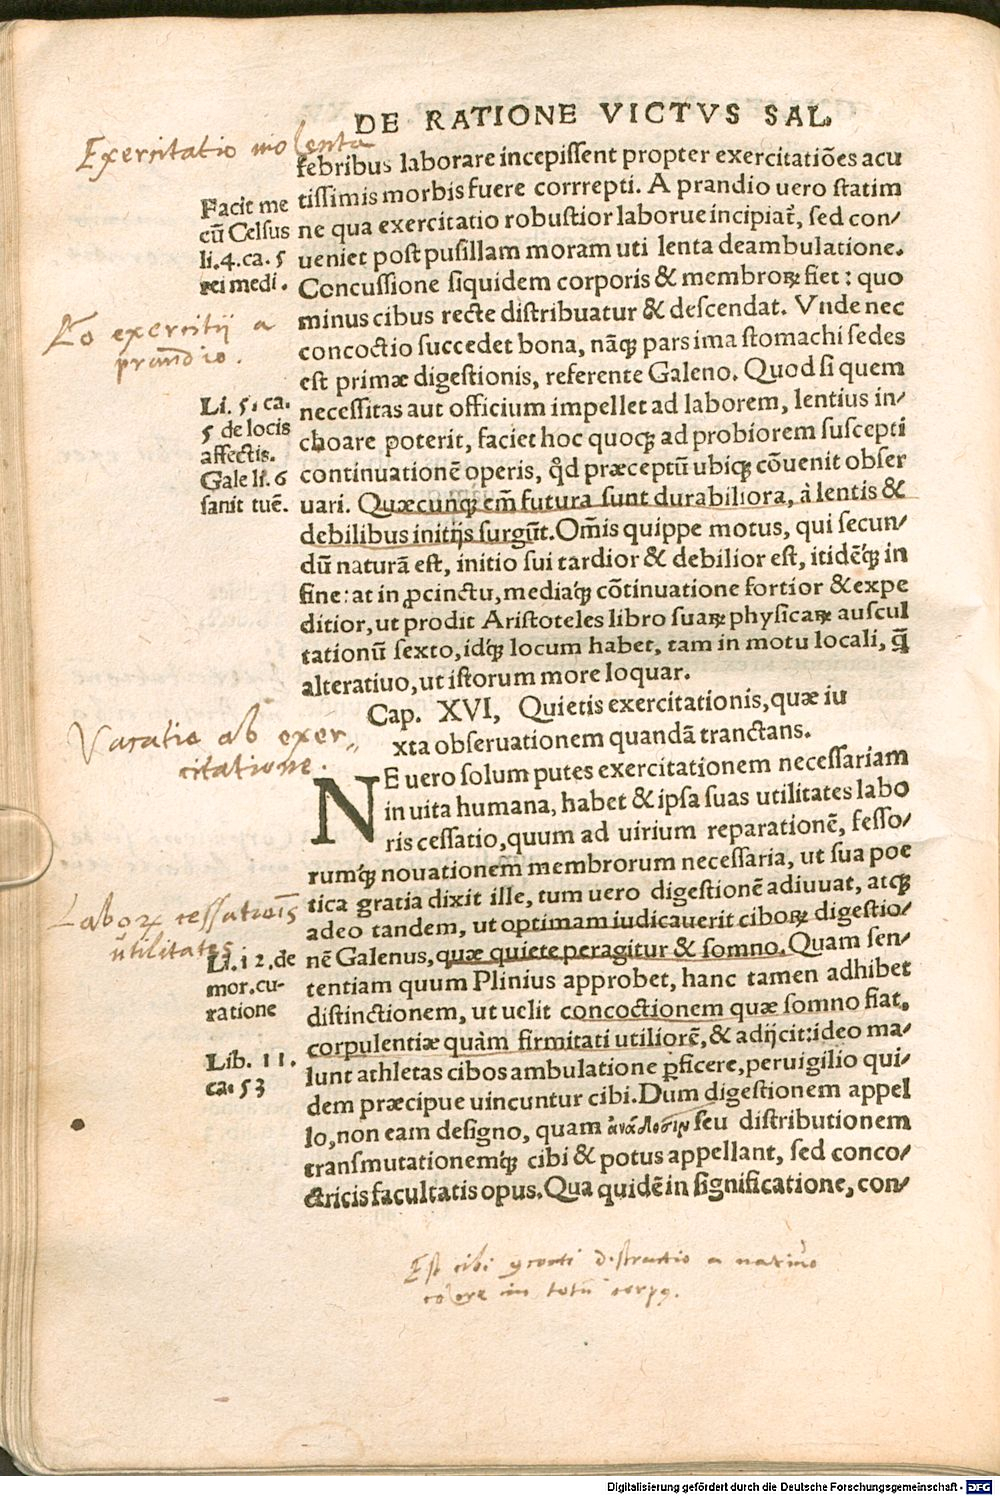 DE RATIONE VICTVS SAL.
Exercitatio violenta
febribus laborare incepissent propter exercitatiões acu
tissimis morbis fuere corrrepti. A prandio uero statim
ne qua exercitatio robustior laborue incipiat᷑, sed con/
ueniet post pusillam moram uti lenta deambulatione.
Concussione siquidem corporis & membroꝝ fiet: quo
minus cibus recte distribuatur & descendat. Vnde nec
concoctio succedet bona, nãqꝫ pars ima stomachi sedes
est primæ digestionis, referente Galeno. Quod si quem
necessitas aut officium impellet ad laborem, lentius in/
choare poterit, faciet hoc quoqꝫ ad probiorem suscepti
continuationē operis, qd̃ præceptũ ubiqꝫ cõuenit obser
uari. Quæcunqꝫ em̃ futura sunt durabiliora, à lentis &
debilibus initijs surgũt. Om̃is quippe motus, qui secun/
dũ naturã est, initio sui tardior & debilior est, itidẽqꝫ in
fine: at in ꝓcinctu, mediaqꝫ cõtinuatione fortior & expe
ditior, ut prodit Aristoteles libro suaꝝ physicaꝝ auscul
tationũ sexto, idqꝫ locum habet, tam in motu locali, q̃
alteratiuo, ut istorum more loquar.
Facit me
cũ Celsus
li.4.ca. 5
rei medi.
a prandio.
Li. 5. ca.
5 de locis
affectis.
Gale li. 6
sanit tuē.
Cap. XVI, Quietis exercitationis, quæ iu
xta obseruationem quandã tranctans.
Vacatio ab exer-
citatione.
NE uero solum putes exercitationem necessariam
in uita humana, habet & ipsa suas utilitates labo
ris cessatio, quum ad uirium reparationē, fesso/
rumqꝫ nouationem membrorum necessaria, ut sua poe
tica gratia dixit ille, tum uero digestionē adiuuat, atqꝫ
adeo tandem, ut optimam iudicauerit ciboꝝ digestio/
nē Galenus, quæ quiete peragitur & somno. Quam sen/
tentiam quum Plinius approbet, hanc tamen adhibet
distinctionem, ut uelit concoctionem quæ somno fiat,
corpulentiæ quàm firmitati utiliorē, & adijcit: ideo ma/
lunt athletas cibos ambulatione ꝑficere, peruigilio qui/
dem præcipue uincuntur cibi. Dum digestionem appel
lo, non eam designo, quam ἀνάδοσιμ seu distributionem
transmutationemqꝫ cibi & potus appellant, sed conco/
ctricis facultatis opus. Qua quidē in significatione, con/
Laboꝝ cessationis
utilitates
Li.12.de
mor.cu-
ratione
Lib. 11.
ca. 53
Est cibi cocti distractio a nativo
calore in totũ corpꝰ.